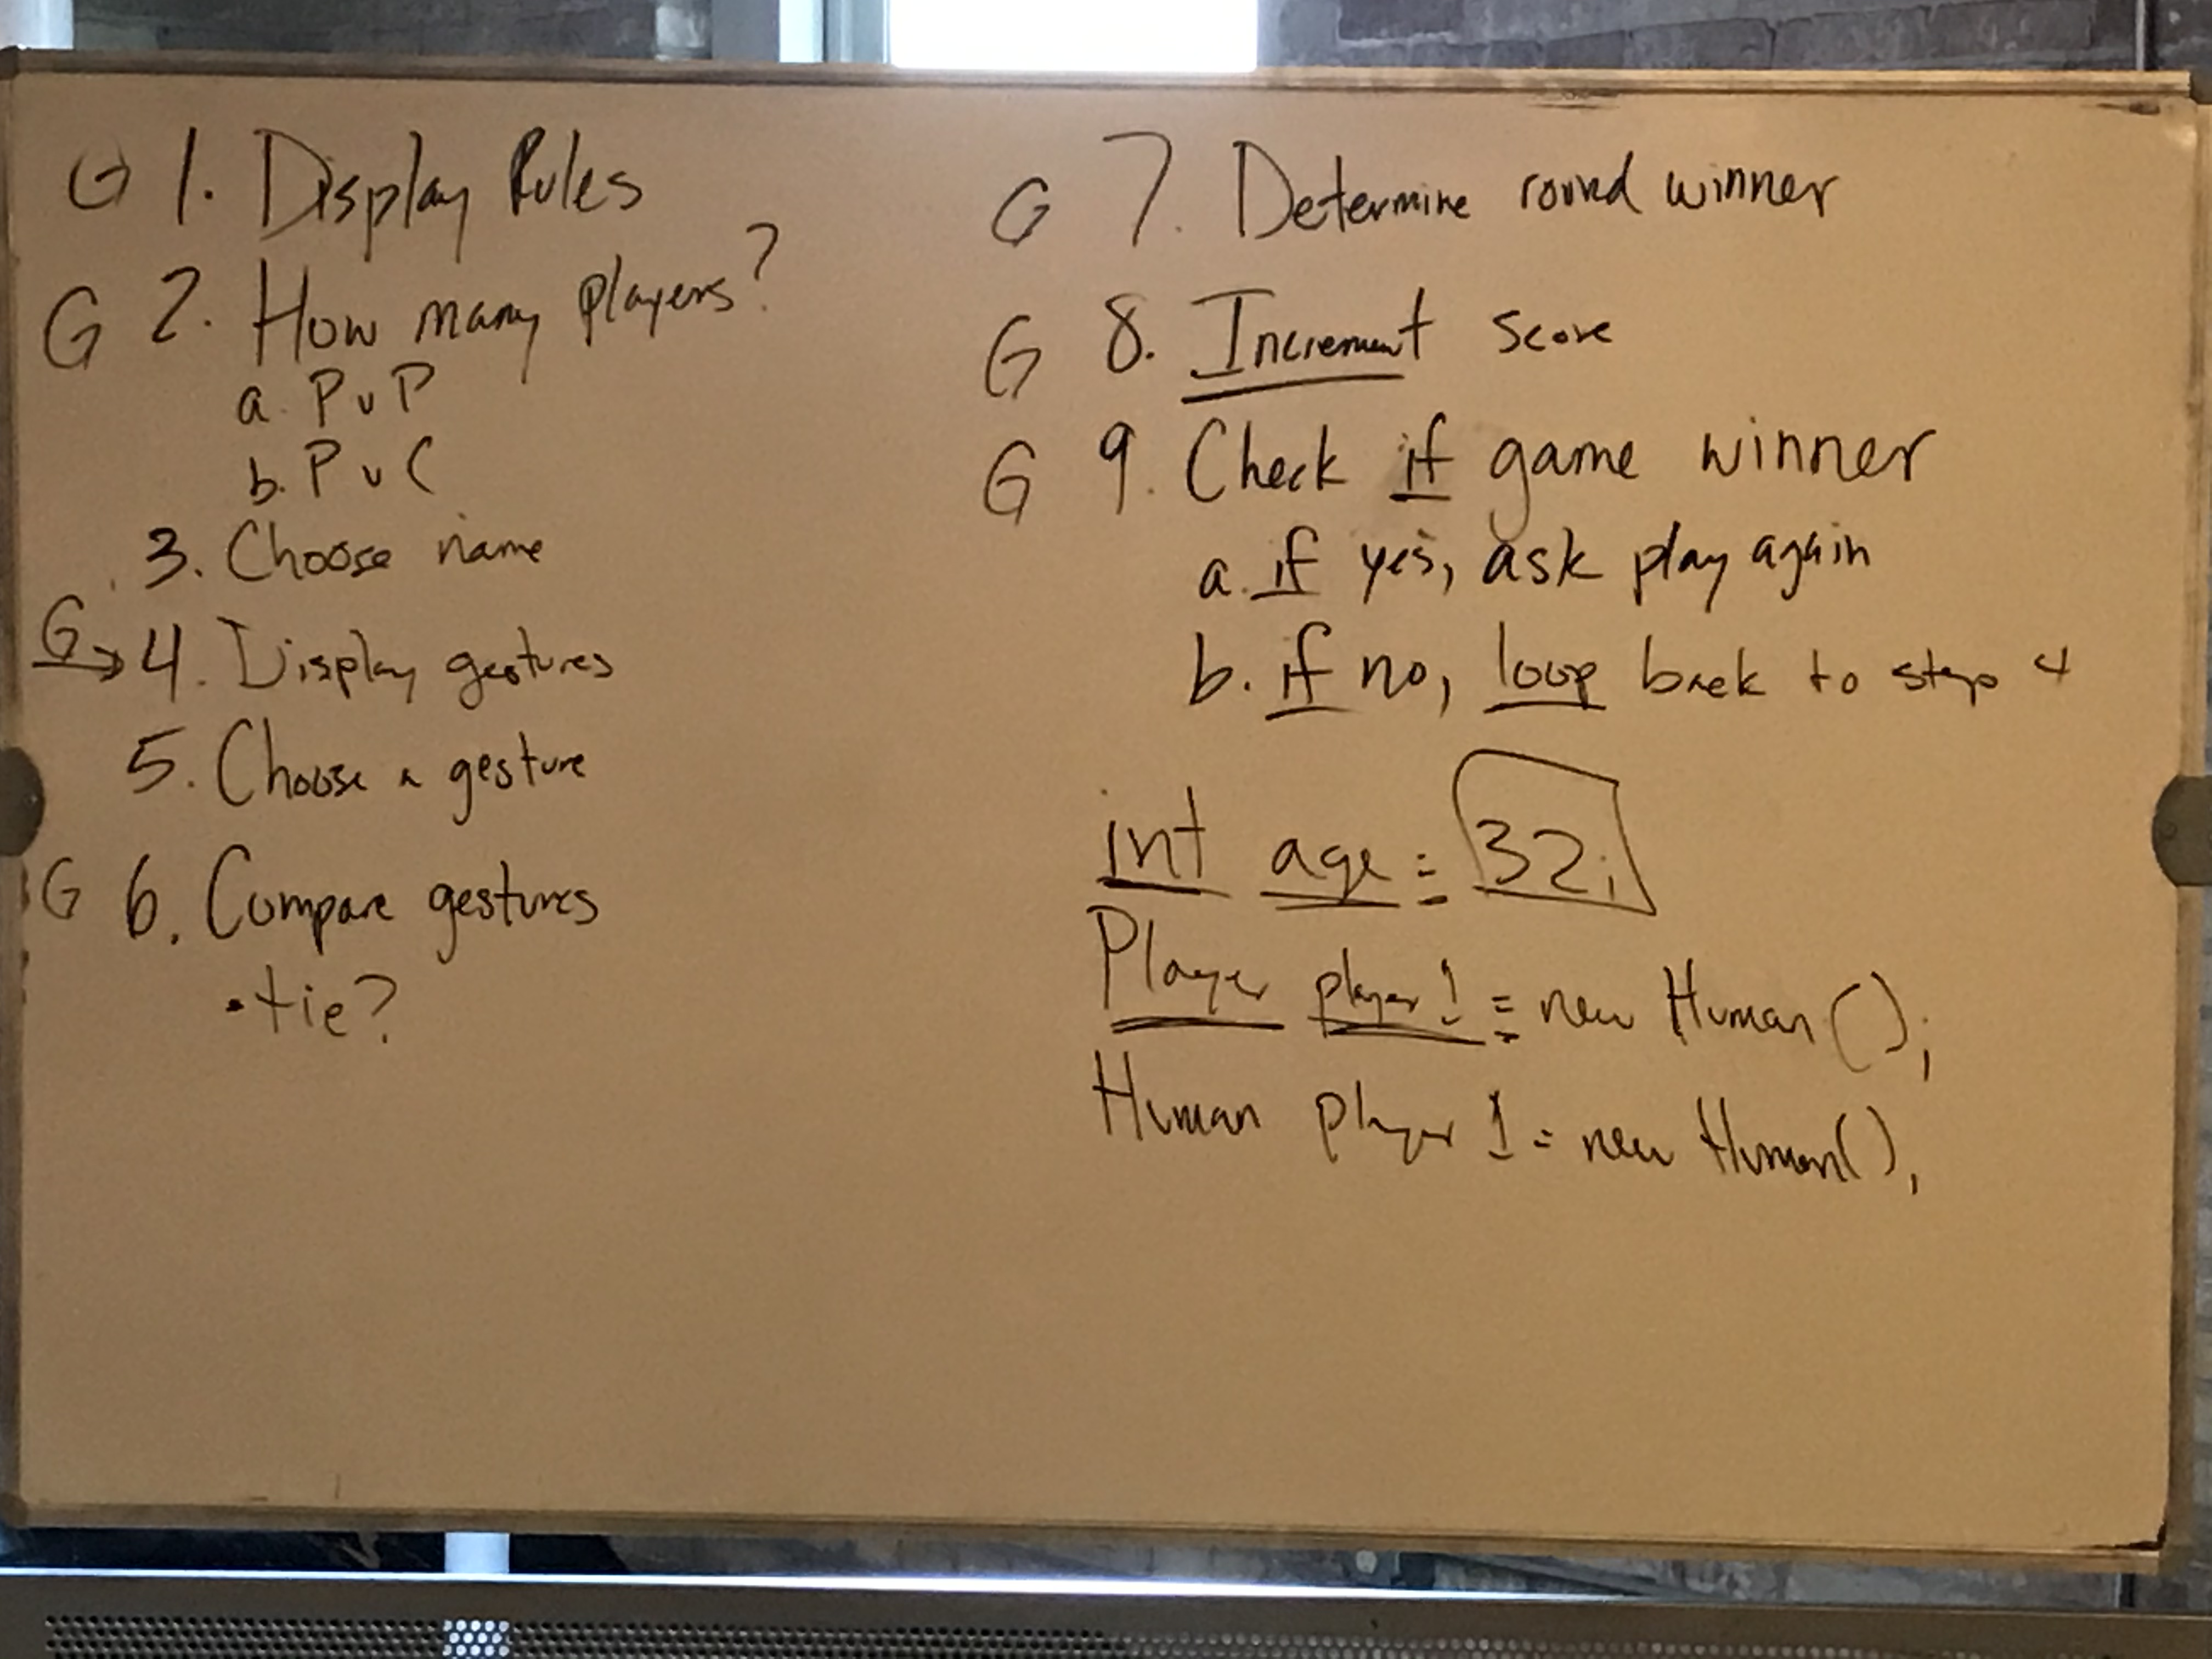 G 1. Display Rules
G 2. How many players?
a. P v P
b. P v C
3. Choose name
G → 4. Display gestures
5. Choose a gesture
G 6. Compare gestures
• tie?
G 7. Determine round winner
G 8. Increment score
G 9. Check if game winner
a. if yes, ask play again
b. if no, loop back to step 4
int age = 32;
Player player1 = new Human();
Human player1 = new Human();